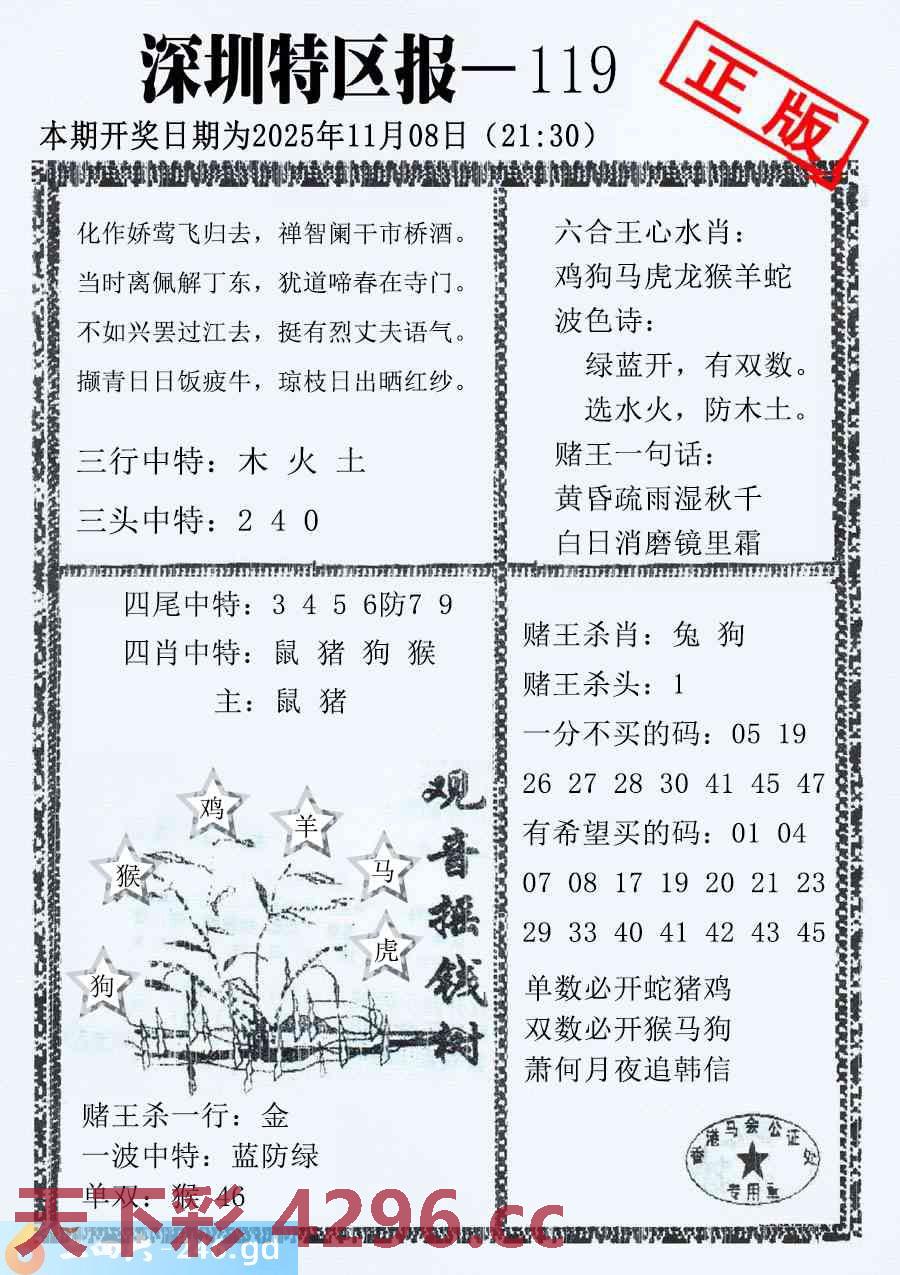 深圳特区报—119
正版
本期开奖日期为2025年11月08日（21:30）
化作娇莺飞归去，禅智阑干市桥酒。
当时离佩解丁东，犹道啼春在寺门。
不如兴罢过江去，挺有烈丈夫语气。
撷青日日饭疲牛，琼枝日出晒红纱。
三行中特：木 火 土
三头中特：2 4 0
六合王心水肖：
鸡狗马虎龙猴羊蛇
波色诗：
绿蓝开，有双数。
选水火，防木土。
赌王一句话：
黄昏疏雨湿秋千
白日消磨镜里霜
四尾中特：3 4 5 6防7 9
四肖中特：鼠 猪 狗 猴
主：鼠 猪
鸡
羊
猴
马
虎
狗
观音摇钱树
赌王杀一行：金
一波中特：蓝防绿
单双：猴 46
赌王杀肖：兔 狗
赌王杀头：1
一分不买的码：05 19
26 27 28 30 41 45 47
有希望买的码：01 04
07 08 17 19 20 21 23
29 33 40 41 42 43 45
单数必开蛇猪鸡
双数必开猴马狗
萧何月夜追韩信
香港马会公证处
专用章
天下彩4296.cc